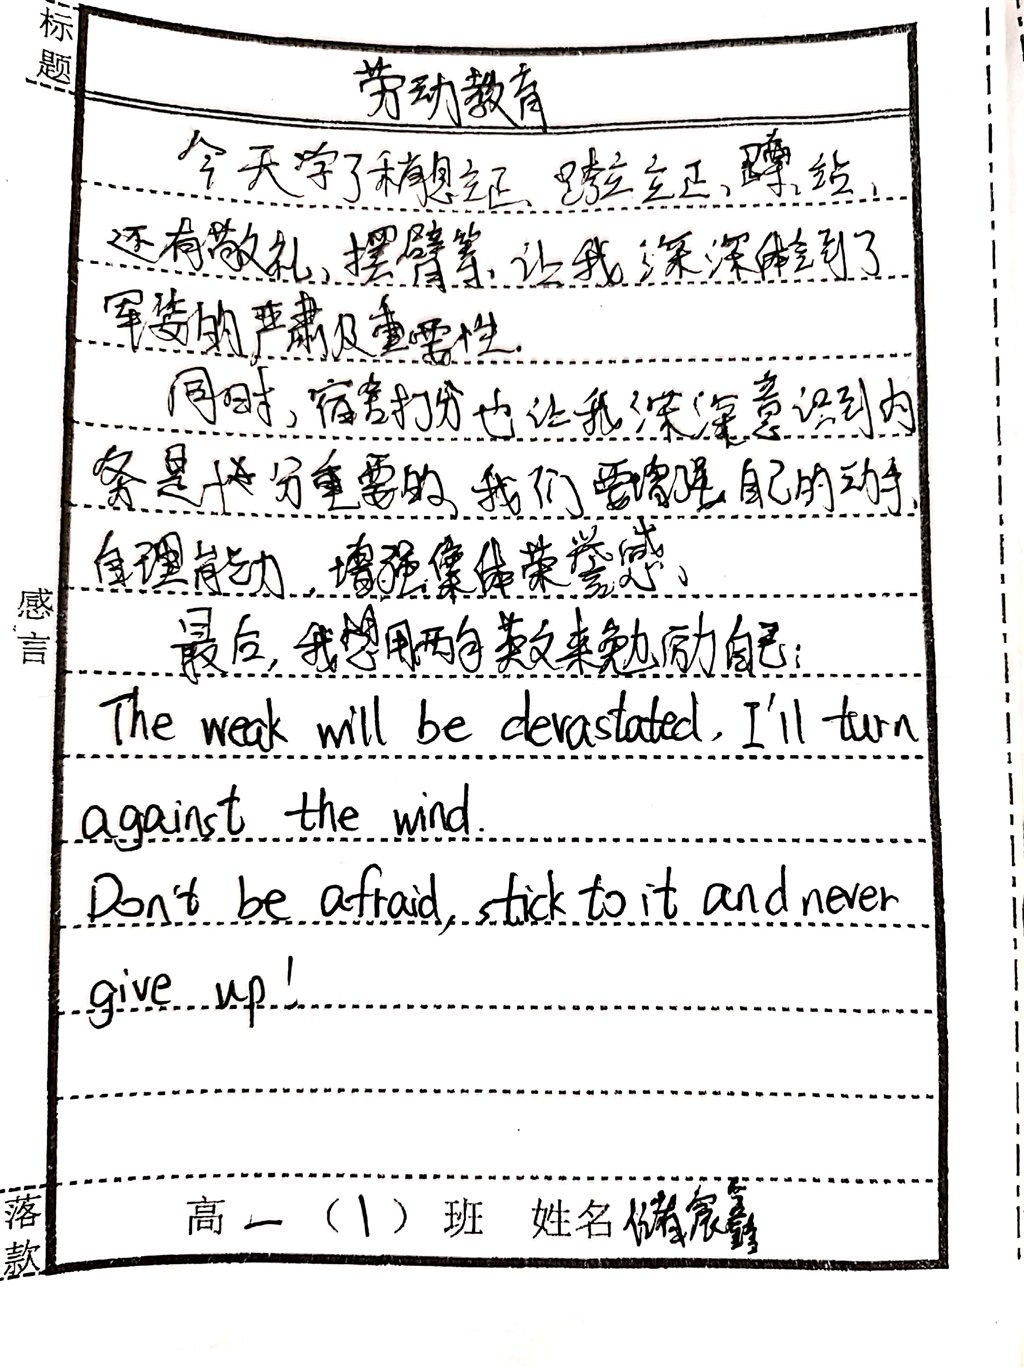 标题
劳动教育
今天学了稍息立正、跨立立正、蹲、站、
还有敬礼、摆臂等、让我深深体会到了
军姿的严肃及重要性.
同时,宿舍打分也让我深深意识到内
务是十分重要的、我们要增强自己的动手、
自理能力,增强集体荣誉感、
感言
最后,我想用两句英文来勉励自己:
The weak will be devastated, I'll turn
against the wind.
Don't be afraid, stick to it and never
give up!
落款
高一(1)班 姓名